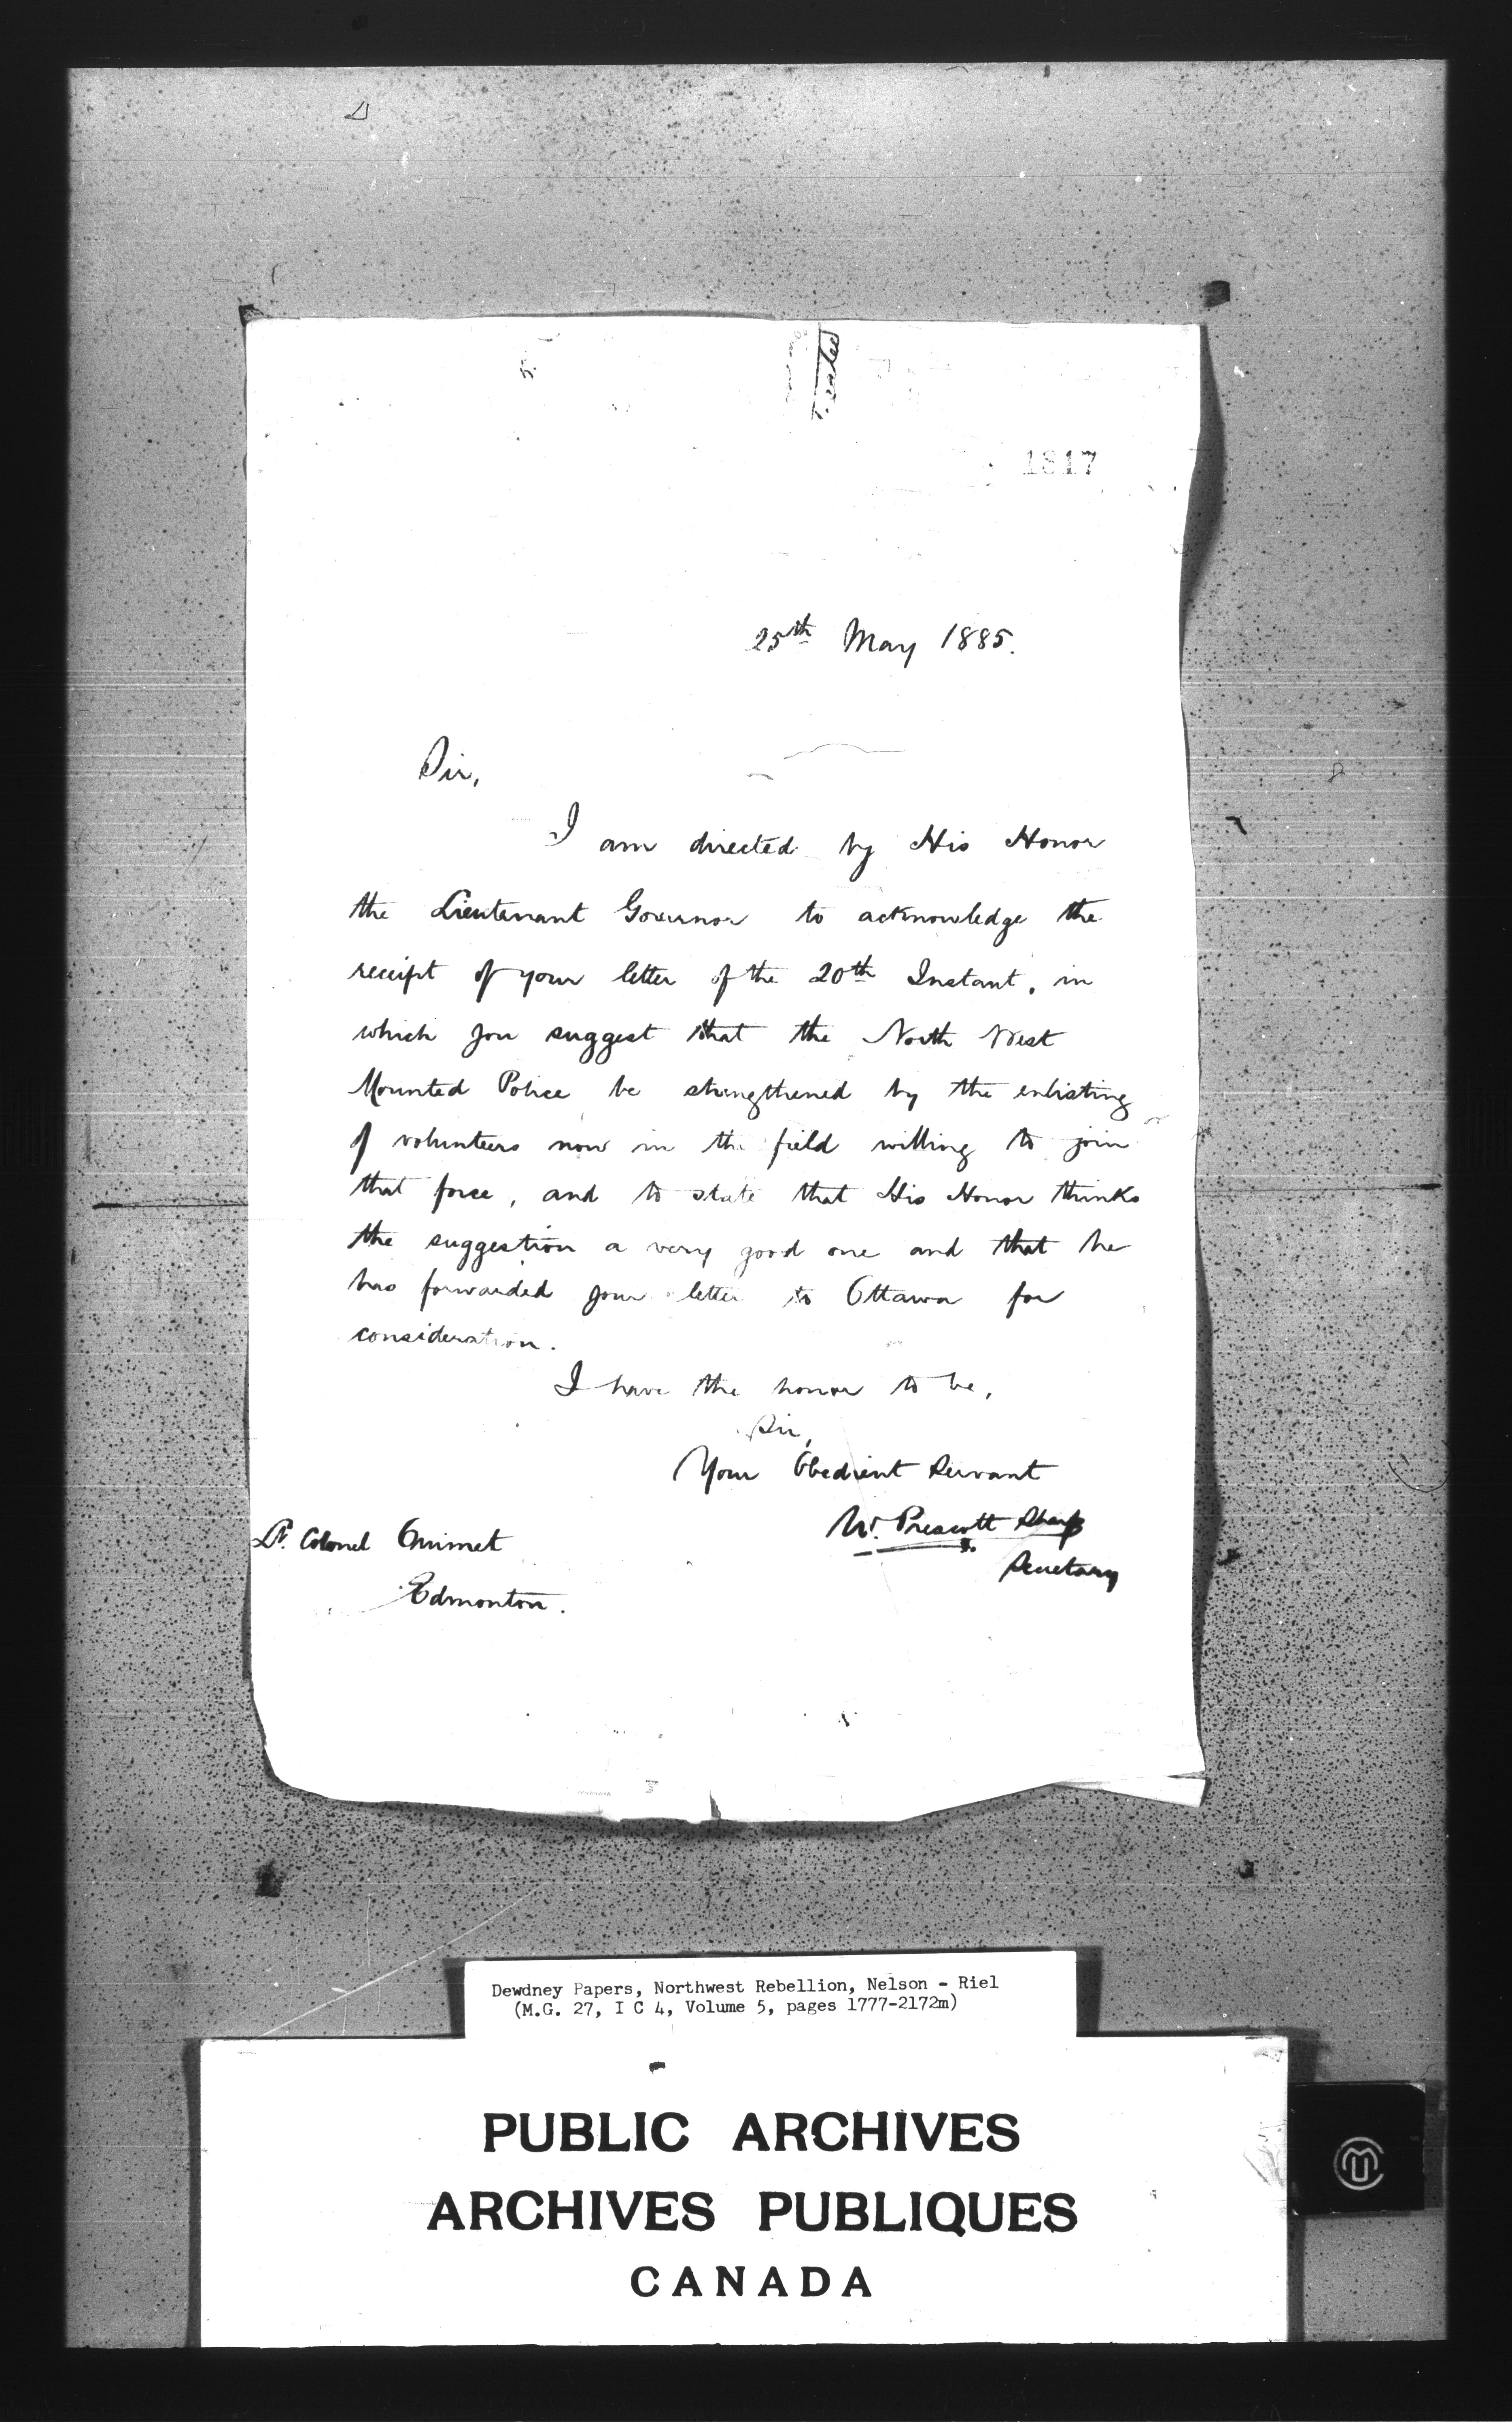 1817
25th May 1885.
Sir,
I am directed by His Honor
the Lieutenant Governor to acknowledge the
receipt of your letter of the 20th Instant, in
which you suggest that the North West
Mounted Police be strengthened by the enlisting
of volunteers now in the field willing to join
that force, and to state that His Honor thinks
the suggestion a very good one and that he
has forwarded your letter to Ottawa for
consideration.
I have the honor to be,
Sir,
Your Obedient Servant
W. Prescott Sharp
Secretary
Lt. Colonel Ouimet
Edmonton.
Dewdney Papers, Northwest Rebellion, Nelson - Riel
(M.G. 27, I C 4, Volume 5, pages 1777-2172m)
PUBLIC ARCHIVES
ARCHIVES PUBLIQUES
CANADA